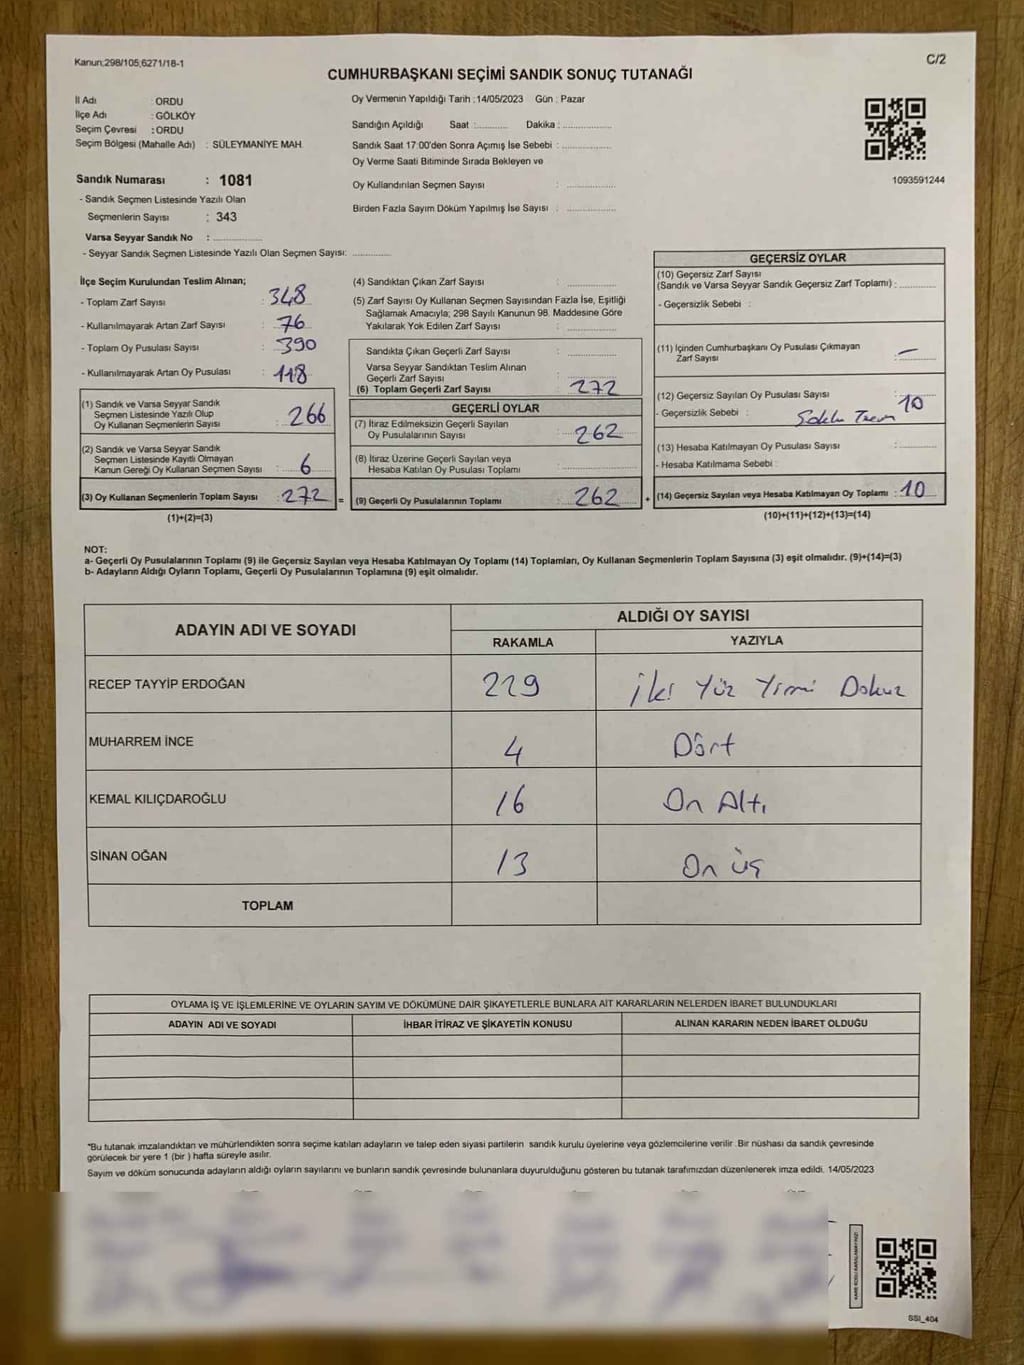 Kanun;298/105;6271/18-1
C/2
CUMHURBAŞKANI SEÇİMİ SANDIK SONUÇ TUTANAĞI
İl Adı : ORDU
İlçe Adı : GÖLKÖY
Seçim Çevresi : ORDU
Seçim Bölgesi (Mahalle Adı) : SÜLEYMANİYE MAH.
Sandık Numarası : 1081
- Sandık Seçmen Listesinde Yazılı Olan
Seçmenlerin Sayısı : 343
Varsa Seyyar Sandık No : ..............
- Seyyar Sandık Seçmen Listesinde Yazılı Olan Seçmen Sayısı: ............
Oy Vermenin Yapıldığı Tarih :14/05/2023 Gün : Pazar
Sandığın Açıldığı Saat :........... Dakika : ................
Sandık Saat 17:00'den Sonra Açımış İse Sebebi : ................
Oy Verme Saati Bitiminde Sırada Bekleyen ve
Oy Kullandırılan Seçmen Sayısı : ................
Birden Fazla Sayım Döküm Yapılmış İse Sayısı : ................
1093591244
İlçe Seçim Kurulundan Teslim Alınan;
- Toplam Zarf Sayısı : 348
- Kullanılmayarak Artan Zarf Sayısı : 76
- Toplam Oy Pusulası Sayısı : 390
- Kullanılmayarak Artan Oy Pusulası : 118
(1) Sandık ve Varsa Seyyar Sandık
Seçmen Listesinde Yazılı Olup
Oy Kullanan Seçmenlerin Sayısı : 266
(2) Sandık ve Varsa Seyyar Sandık
Seçmen Listesinde Kayıtlı Olmayan
Kanun Gereği Oy Kullanan Seçmen Sayısı : 6
(3) Oy Kullanan Seçmenlerin Toplam Sayısı : 272 =
(1)+(2)=(3)
(4) Sandıktan Çıkan Zarf Sayısı : ................
(5) Zarf Sayısı Oy Kullanan Seçmen Sayısından Fazla İse, Eşitliği
Sağlamak Amacıyla; 298 Sayılı Kanunun 98. Maddesine Göre
Yakılarak Yok Edilen Zarf Sayısı : ................
Sandıkta Çıkan Geçerli Zarf Sayısı : ................
Varsa Seyyar Sandıktan Teslim Alınan
Geçerli Zarf Sayısı : ................
(6) Toplam Geçerli Zarf Sayısı : 272
GEÇERLİ OYLAR
(7) İtiraz Edilmeksizin Geçerli Sayılan
Oy Pusulalarının Sayısı : 262
(8) İtiraz Üzerine Geçerli Sayılan veya
Hesaba Katılan Oy Pusulası Toplamı : ................
(9) Geçerli Oy Pusulalarının Toplamı : 262 +
GEÇERSİZ OYLAR
(10) Geçersiz Zarf Sayısı
(Sandık ve Varsa Seyyar Sandık Geçersiz Zarf Toplamı) : ............
- Geçersizlik Sebebi :
(11) İçinden Cumhurbaşkanı Oy Pusulası Çıkmayan
Zarf Sayısı : —
(12) Geçersiz Sayılan Oy Pusulası Sayısı : 10
- Geçersizlik Sebebi :
(13) Hesaba Katılmayan Oy Pusulası Sayısı : ............
- Hesaba Katılmama Sebebi :
(14) Geçersiz Sayılan veya Hesaba Katılmayan Oy Toplamı : 10
(10)+(11)+(12)+(13)=(14)
NOT:
a- Geçerli Oy Pusulalarının Toplamı (9) ile Geçersiz Sayılan veya Hesaba Katılmayan Oy Toplamı (14) Toplamları, Oy Kullanan Seçmenlerin Toplam Sayısına (3) eşit olmalıdır. (9)+(14)=(3)
b- Adayların Aldığı Oyların Toplamı, Geçerli Oy Pusulalarının Toplamına (9) eşit olmalıdır.
ADAYIN ADI VE SOYADI ALDIĞI OY SAYISI
RAKAMLA YAZIYLA
RECEP TAYYİP ERDOĞAN 229 İki Yüz Yirmi Dokuz
MUHARREM İNCE 4 Dört
KEMAL KILIÇDAROĞLU 16 On Altı
SİNAN OĞAN 13 On üç
TOPLAM
OYLAMA İŞ VE İŞLEMLERİNE VE OYLARIN SAYIM VE DÖKÜMÜNE DAİR ŞİKAYETLERLE BUNLARA AİT KARARLARIN NELERDEN İBARET BULUNDUKLARI
ADAYIN ADI VE SOYADI İHBAR İTİRAZ VE ŞİKAYETİN KONUSU ALINAN KARARIN NEDEN İBARET OLDUĞU
*Bu tutanak imzalandıktan ve mühürlendikten sonra seçime katılan adayların ve talep eden siyasi partilerin sandık kurulu üyelerine veya gözlemcilerine verilir .Bir nüshası da sandık çevresinde
görülecek bir yere 1 (bir ) hafta süreyle asılır.
Sayım ve döküm sonucunda adayların aldığı oyların sayılarını ve bunların sandık çevresinde bulunanlara duyurulduğunu gösteren bu tutanak tarafımızdan düzenlenerek imza edildi. 14/05/2023
SSI_404